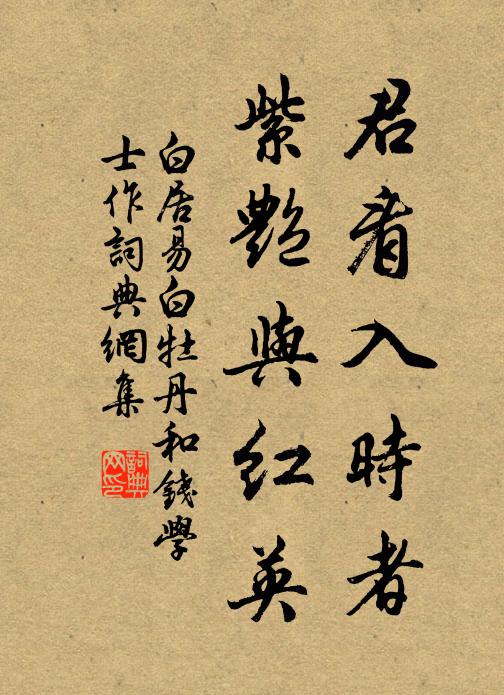 君看入時者
紫艷與紅英
白居易白牡丹和錢學
士作詞典網集
詞典
网印